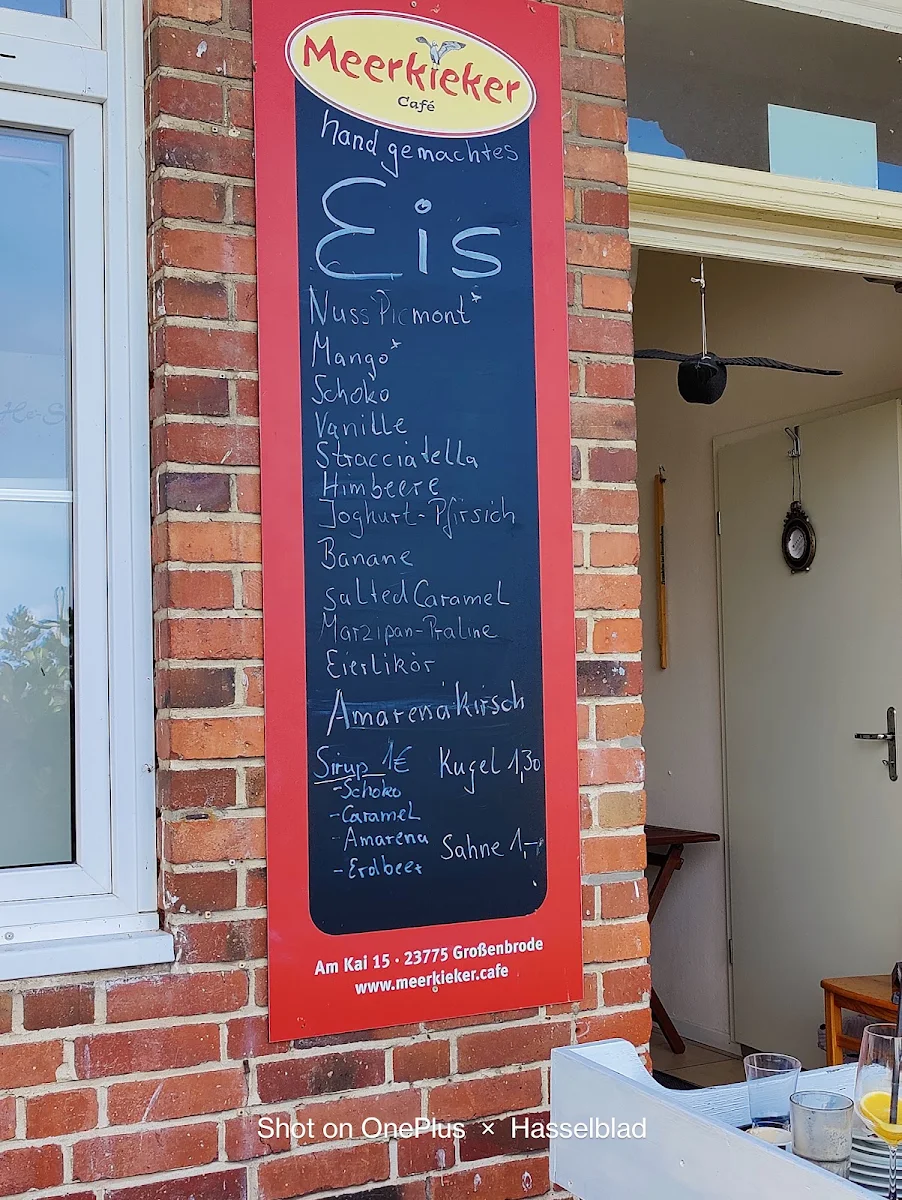 Meerkieker
Café
handgemachtes
Eis
Nuss Piemont*
Mango*
Schoko
Vanille
Stracciatella
Himbeere
Joghurt-Pfirsich
Banane
salted Caramel
Marzipan-Praline
Eierlikör
Amarena Kirsch
Sirup 1€
-Schoko
-Caramel
-Amarena
-Erdbeer
Kugel 1,30
Sahne 1,-
Am Kai 15 · 23775 Großenbrode
www.meerkieker.cafe
Shot on OnePlus × Hasselblad